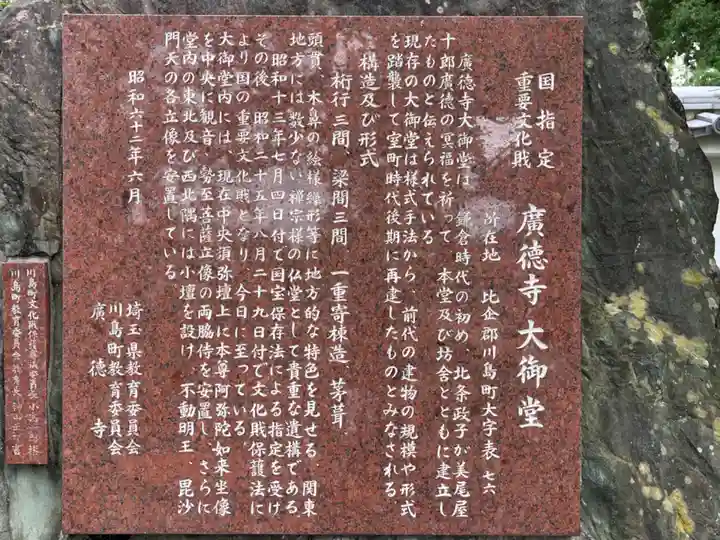 国指定
重要文化財
廣徳寺大御堂
所在地 比企郡川島町大字表 七六
廣徳寺大御堂は、鎌倉時代の初め、北条政子が美尾屋
十郎廣徳の冥福を祈って、本堂及び坊舎とともに建立し
たものと伝えられている。
現存の大御堂は様式手法から、前代の建物の規模や形式
を踏襲して室町時代後期に再建したものとみなされる。
構造及び形式
桁行三間、梁間三間、一重寄棟造、茅葺、
頭貫、木鼻の絵様繰形等に地方的な特色を見せる。関東
地方には数少ない禅宗様の仏堂として貴重な遺構である。
昭和十三年七月四日付で国宝保存法による指定を受け
その後、昭和二十五年八月二十九日付で文化財保護法に
より国の重要文化財となり、今日に至っている。
大御堂内には、現在中央須弥壇上に本尊阿弥陀如来坐像
を中央に観音、勢至菩薩立像の両脇侍を安置し、さらに
堂内の東北及び西北隅には小壇を設け、不動明王、毘沙
門天の各立像を安置している。
昭和六十二年六月
埼玉県教育委員会
川島町教育委員会
廣徳寺
川島町文化財保護審議委員長
川島町教育委員会